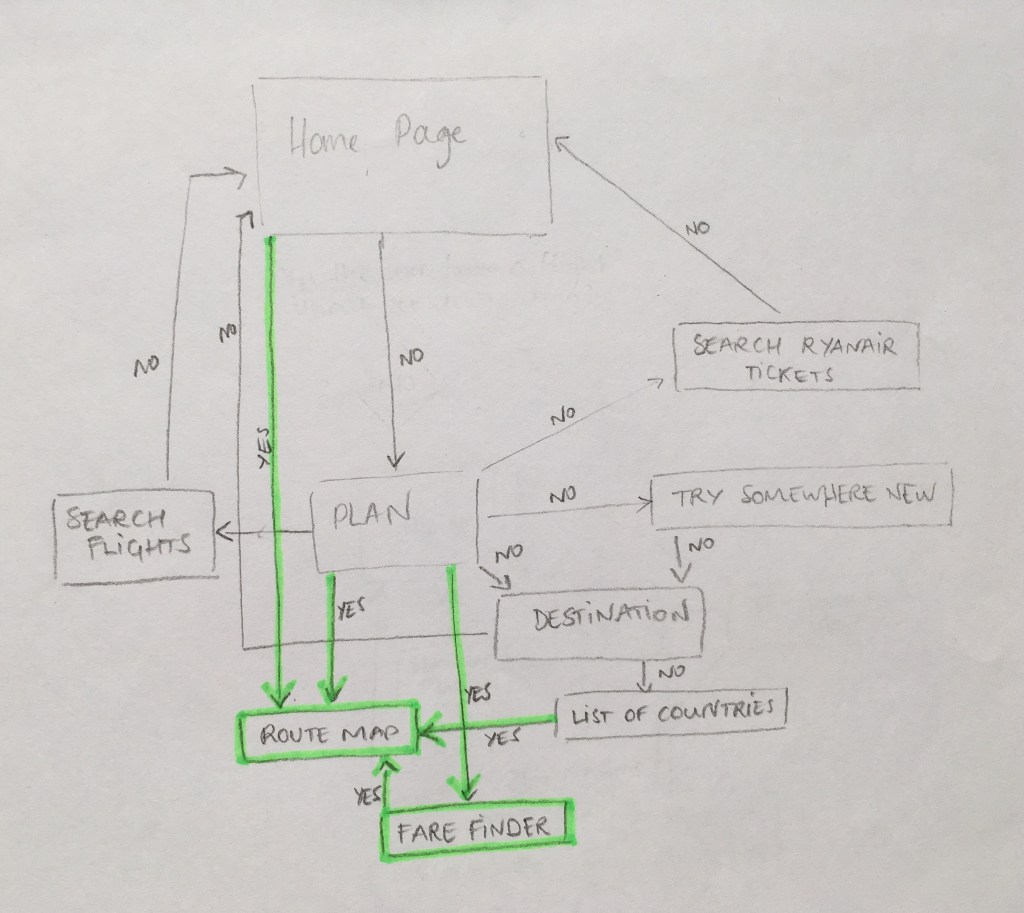 Home Page
NO
NO
NO
NO
SEARCH RYANAIR
TICKETS
NO
YES
PLAN
NO
TRY SOMEWHERE NEW
SEARCH
FLIGHTS
NO
NO
YES
DESTINATION
NO
YES
LIST OF COUNTRIES
ROUTE MAP
YES
YES
FARE FINDER